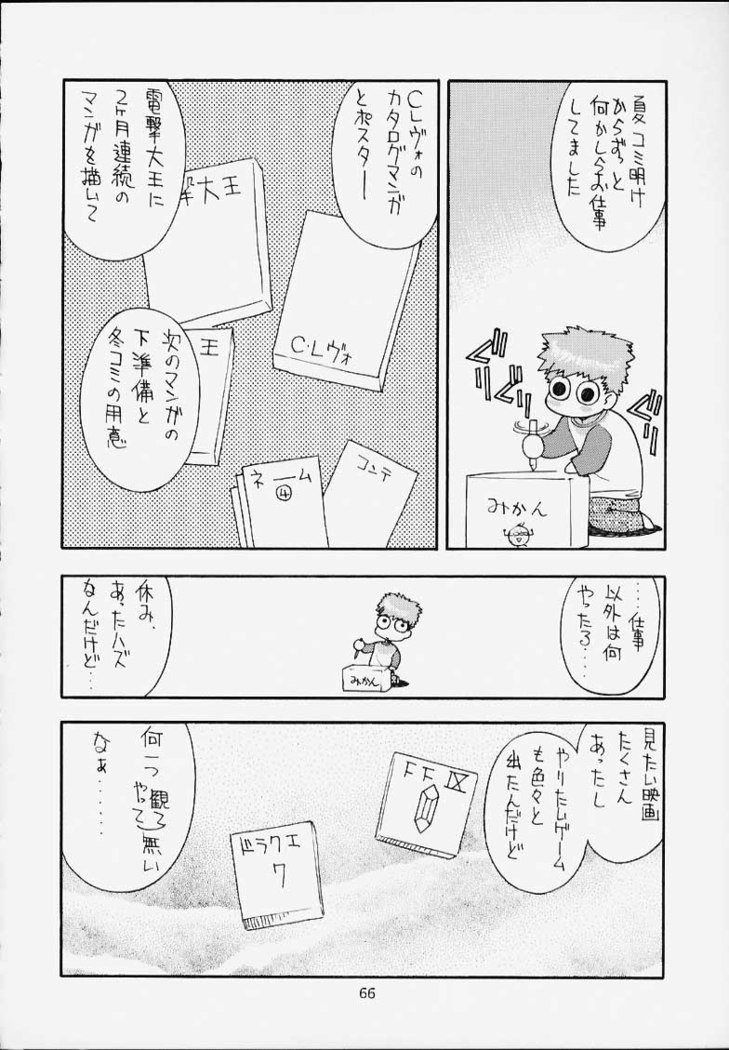 夏コミ明け
からずっと
何かしらお仕事
してました
グリ
グリ
グリ
グリ
みかん
CLヴォの
カタログマンガ
とポスター
電撃大王に
2ヶ月連続の
マンガを描いて
撃大王
C・Lヴォ
次のマンガの
下準備と
冬コミの用意
王
ネーム
④
コンテ
....仕事
以外は何
やったろ....
みかん
休み、
あったハズ
なんだけど...
見たい映画
たくさん
あったし
やりたいゲーム
も色々と
出たんだけど
FFIX
ドラクエ
7
何一つ観てやってない
なぁ......
66